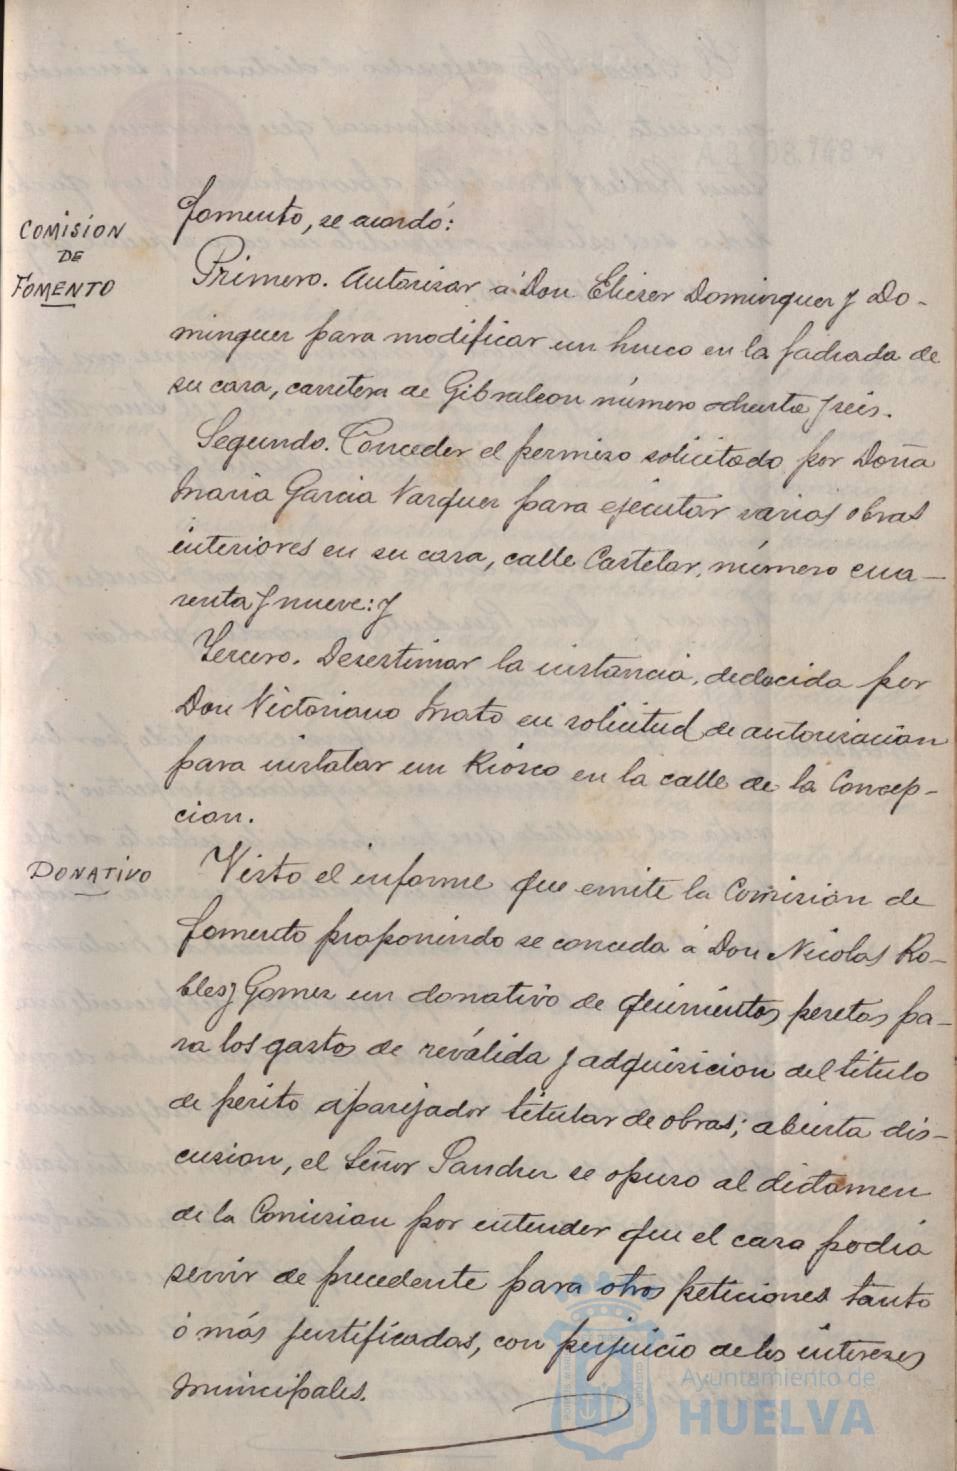 COMISION
DE
FOMENTO
fomento, se acordó:
Primero. Autorizar á Don Eliezer Dominguez y Do-
minguez para modificar un hueco en la fachada de
su casa, carretera de Gibraleon número ochenta y seis.
Segundo. Conceder el permiso solicitado por Doña
Maria Garcia Vazquez para ejecutar varias obras
interiores en su casa, calle Castelar, número cua-
renta y nueve: y
Tercero. Desestimar la instancia, deducida por
Don Victoriano Mato en solicitud de autorización
para instalar un Kiosco en la calle de la Concep-
cion.
DONATIVO
Visto el informe que emite la Comisión de
fomento proponiendo se conceda á Don Nicolas Ro-
bles y Gomez un donativo de quinientas pesetas pa-
ra los gastos de reválida y adquisicion del titulo
de perito aparejador titular de obras; abierta dis-
cusion, el Señor Sanchez se opuso al dictamen
de la Comision por entender que el caso podia
servir de precedente para otras peticiones tanto
ó más justificadas, con perjuicio de los intereses
municipales.
Ayuntamiento de
HUELVA